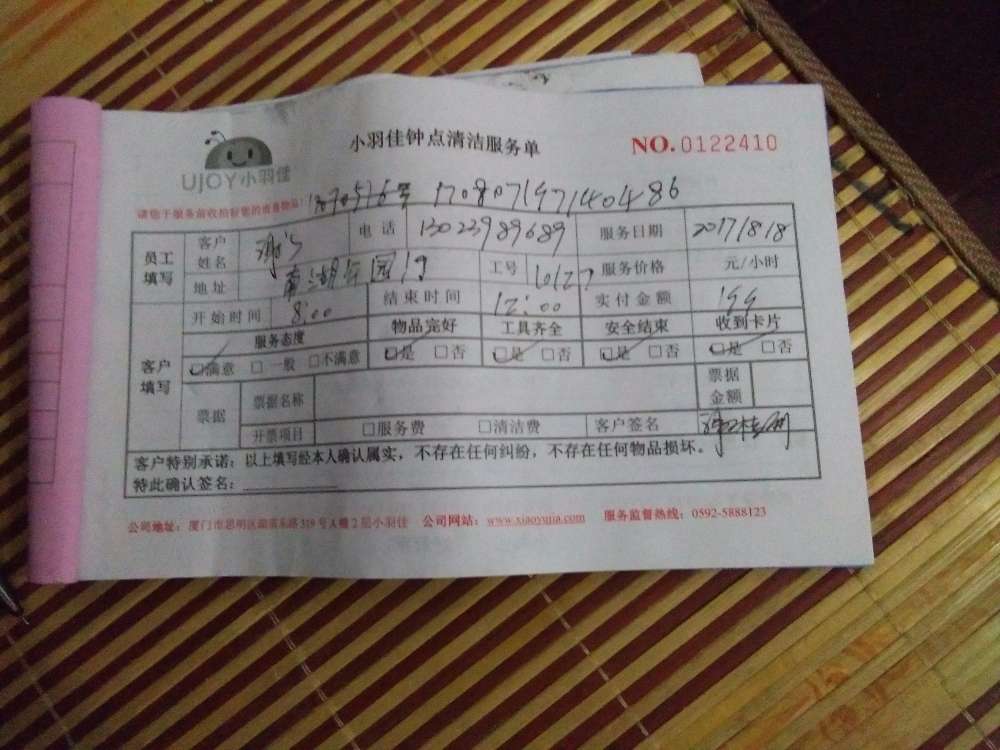 小羽佳钟点清洁服务单
NO.0122410
UJOY小羽佳
请您于服务前收拾好您的贵重物品!
170807197140486
员工填写 客户姓名 电话 13023989689 服务日期 2017/8/18
地址 南湖 工号 10127 服务价格 元/小时
开始时间 8:00 结束时间 12:00 实付金额 199
客户填写 服务态度 物品完好 工具齐全 安全结束 收到卡片
☑满意 □一般 □不满意 ☑是 □否 ☑是 □否 ☑是 □否 ☑是 □否
票据 票据名称 票据金额
开票项目 □服务费 □清洁费 客户签名
客户特别承诺：以上填写经本人确认属实，不存在任何纠纷，不存在任何物品损坏。
特此确认签名：
公司地址：厦门市思明区湖滨东路319号A幢2层小羽佳 公司网站：www.xiaoyujia.com 服务监督热线：0592-5888123